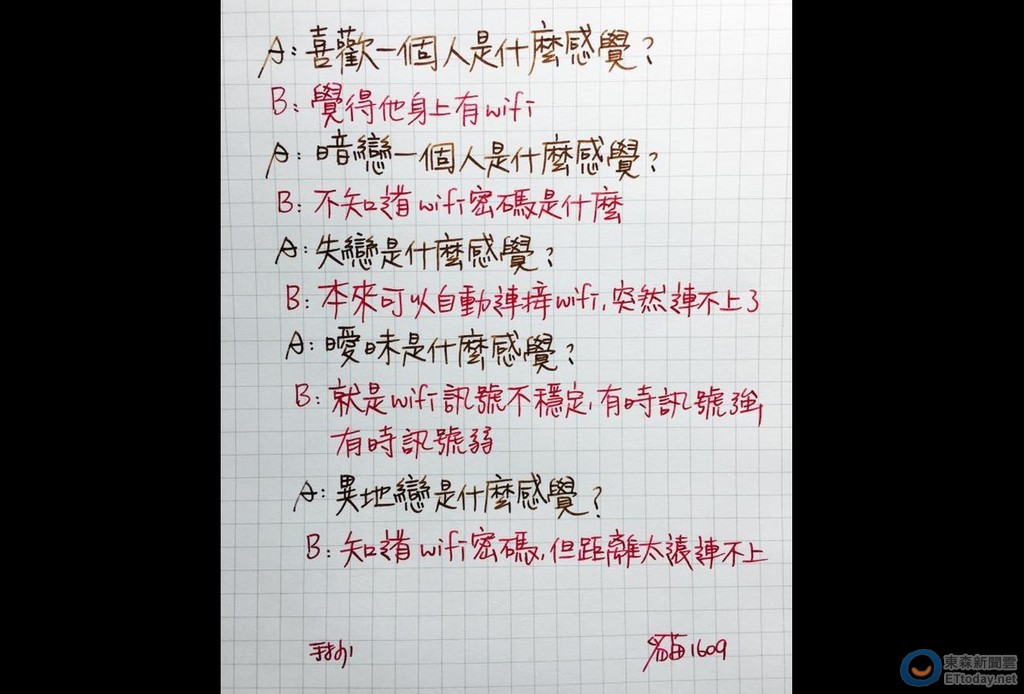 A:喜歡一個人是什麼感覺?
B:覺得他身上有wifi
A:暗戀一個人是什麼感覺?
B:不知道wifi密碼是什麼
A:失戀是什麼感覺?
B:本來可以自動連接wifi,突然連不上了
A:曖昧是什麼感覺?
B:就是wifi訊號不穩定,有時訊號強,
有時訊號弱
A:異地戀是什麼感覺?
B:知道wifi密碼,但距離太遠連不上
1609
東森新聞雲
ETtoday.net